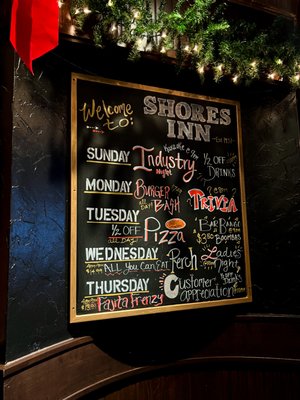 Welcome
to:
SHORES
INN
SUNDAY Industry
Night
1/2 OFF
DRINKS
MONDAY BURGER
BASH
ALL DAY
TRIVIA
TUESDAY
1/2 OFF
ALL DAY
Pizza
WEDNESDAY
ALL You CAN EAT Perch
Ladies
Night
THURSDAY
Fajita Frenzy
Customer
appreciation